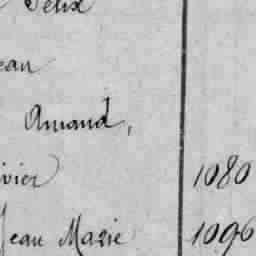 Félix
ean
Amand,
ivier 1080
Jean Marie 1096